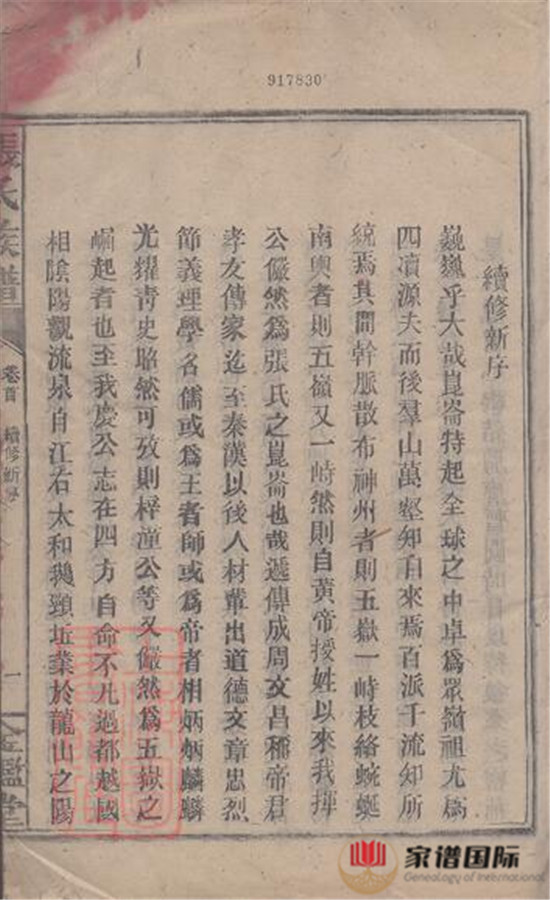 917830
續修新序
巍巍乎大哉崑崙特起全球之中卓爲眾嶺祖尤爲
四瀆源夫而後羣山萬壑知自來焉百派千流知所
統焉其間幹脈散布神州者則五嶽一峙枝絡蜿蜒
南輿者則五嶺又一峙然則自黃帝授姓以來我揮
公儼然爲張氏之崑崙也哉遞傳成周文昌稱帝君
孝友傳家迄至秦漢以後人材輩出道德文章忠烈
節義理學名儒或爲王者師或爲帝者相炳炳麟麟
光耀靑史昭然可攷則梓潼公等又儼然爲五嶽之
崛起者也至我慶公志在四方自命不凡過都越國
相陰陽觀流泉自江右太和鵝頸坵業於龍山之陽
張氏族譜
卷首
續修新序
一
金鑑堂
家谱国际
Genealogy of International